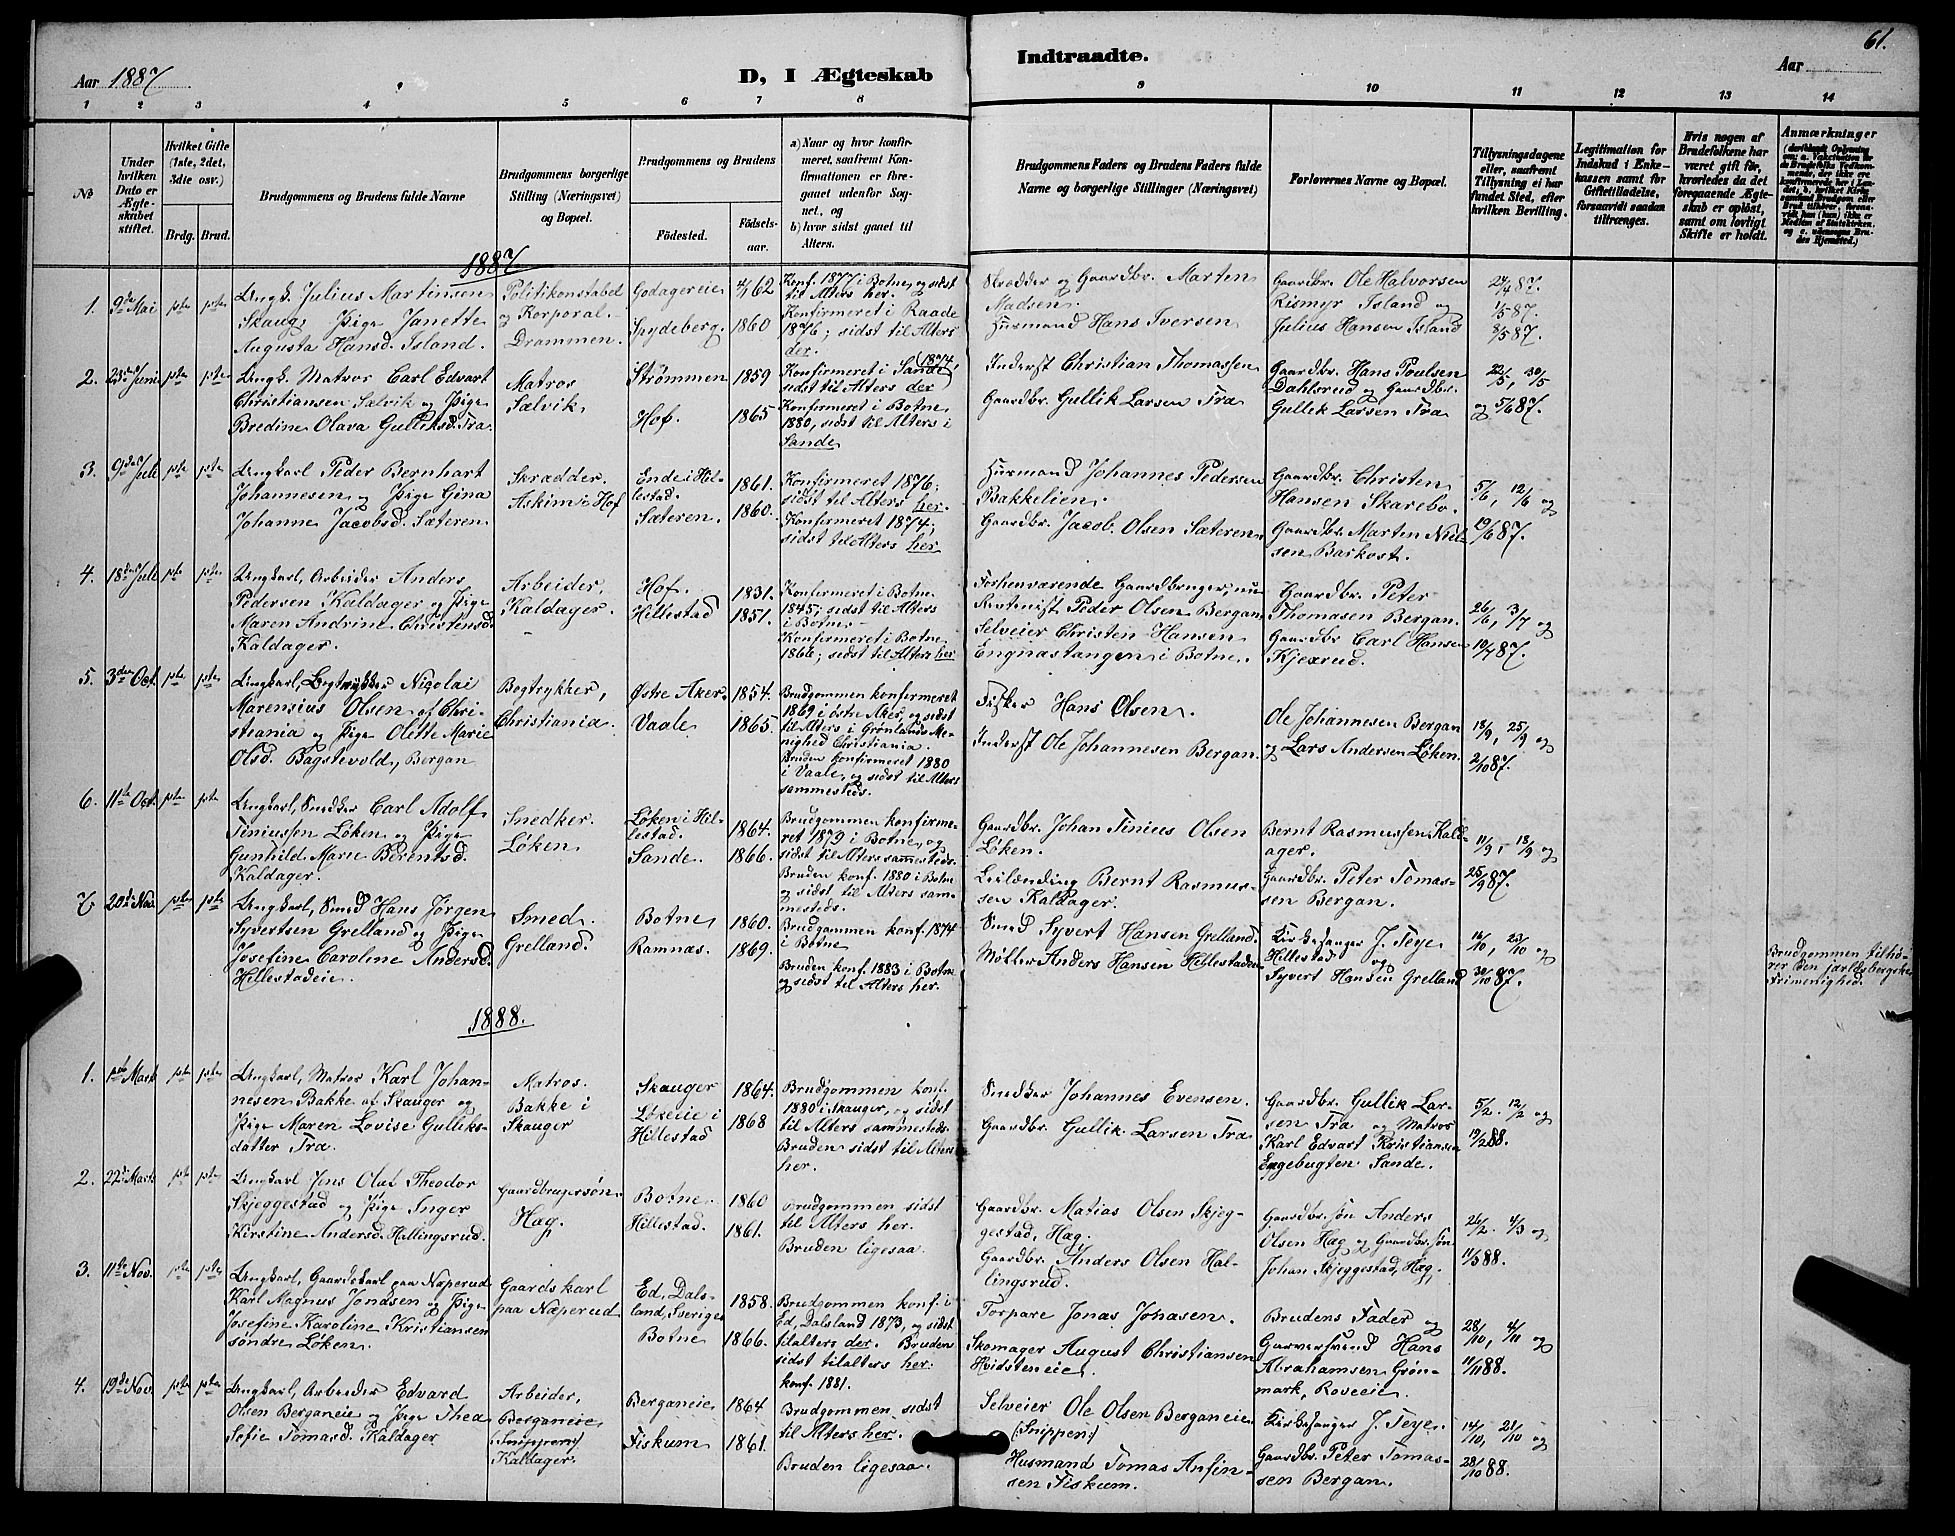 Aar 1887
D, I Ægteskab
Indtraadte.
61.
Aar
1 2 3 4 5 6 7 8 9 10 11 12 13 14
№
Under hvilken Dato er Ægteskabet stiftet.
Hvilket Gifte (1ste, 2det, 3die osv.)
Brdg. Brud.
Brudgommens og Brudens fulde Navne
Brudgommens borgerlige Stilling (Næringsvei) og Bopæl.
Brudgommens og Brudens
Fødested.
Fødselsaar.
a) Naar og hvor konfirmeret, saafremt Konfirmationen er foregaaet udenfor Sognet, og
b) hvor sidst gaaet til Alters.
Brudgommens Faders og Brudens Faders fulde Navne og borgerlige Stillinger (Næringsvei)
Forlovernes Navne og Bopæl.
Tillysningsdagene eller, saafremt Tillysning ei har fundet Sted, efter hvilken Bevilling.
Legitimation for Indskud i Enkekassen samt for Giftetilladelse, forsaavidt saadan tiltrænges.
Hvis nogen af Brudefolkene har været gift før, hvorledes da det foregaaende Ægteskab er opløst, samt om lovligt Skifte er holdt.
Anmærkninger
1887
1. 9de Mai pte pte
Ungk. Julius Martinsen
Skaug, Pige Janette
Augusta Hansd. Island.
Politikonstabel
og Korporal.
Drammen.
Godagereie 4/1 62
Spydeberg. 1860
Konf. 1877 i Botne, og sidst
til Alters her.
Konfirmeret i Raade
1876; sidst til Alters
der.
Skredder og Gaardbr. Marten
Madsen.
Husmand Hans Iversen
Gaardbr. Ole Halvorsen
Rismyr Island og
Julius Hansen Island
24/4 87.
1/5 87.
8/5 87.
2. 23de Juni pte pte
Ungk. Matros Carl Edvart
Christiansen Sælvik og Pige
Bredine Olava Gulliksd. Tra.
Matros
Sælvik
Strømmen 1859
Hof. 1865
Konfirmeret i Sande 1874,
sidst til Alters der
Konfirmeret i Botne
1880, sidst til Alters i
Sande
Inderst Christian Thomassen
Gaardbr. Gullik Larsen Tra
Gaardbr. Hans Poulsen
Dahlsrud og Gaardbr.
Gullik Larsen Tra
22/5, 30/5
og 5/6 87.
3. 9de Juli pte pte
Ungkarl Peder Bernhart
Johannesen og Pige Gina
Johanne Jacobsd. Sæteren
Skrædder.
Askim i Hof
Ende i Hillestad. 1861.
Sæteren. 1860.
Konfirmeret 1876;
sidst til Alters her.
Konfirmeret 1874;
sidst til Alters her
Husmand Johannes Pedersen
Bakkelien.
Gaardbr. Jacob Olsen Sæteren
Gaardbr. Christen
Hansen Skarebo.
Gaardbr. Marten Nielsen Barkost.
5/6, 12/6 og
19/6 87.
4. 18de Juli pte pte
Ungkarl, Arbeider Anders
Pedersen Kaldager og Pige
Maren Andrine Christensd.
Kaldager.
Arbeider,
Kaldager.
Hof. 1831.
Hillestad 1851.
Konfirmeret i Botne
1845; sidst til Alters
i Botne.
Konfirmeret i Botne
1866; sidst til Alters her
Forhenværende Gaardbruger, nu
Peder Olsen Bergan
Selveier Christen Hansen
Engnastangen i Botne.
Gaardbr. Peter
Thomasen Bergan.
Gaardbr Carl Hansen
Kjexrud.
26/6, 3/7 og
10/7 87.
5. 3die Oct. pte pte
Ungkarl, Bogtrykker Nicolai
Marensius Olsen af Christiania og Pige Olette Marie
Olsd. Bagstevold, Bergan
Bogtrykker,
Christiania.
Østre Aker. 1854.
Vaale 1865.
Brudgommen konfirmeret
1869 i østre Aker, og sidst
til Alters i Grønlands Menighed Christiania.
Bruden konfirmeret 1880
i Vaale, og sidst til Alters
sammesteds.
Fisker Hans Olsen.
Inderst Ole Johannesen Bergan.
Ole Johannesen Bergan
og Lars Andersen Løken.
18/9, 25/9 og
2/10 87.
6. 11te Oct. pte pte
Ungkarl, Snedker Carl Adolf
Tiniussen Løken og Pige
Gunhild Marie Berentsd.
Kaldager.
Snedker.
Løken
Løken i Hillestad. 1864.
Sande. 1866.
Brudgommen konfirmeret 1879 i Botne, og
sidst til Alters sammesteds.
Bruden konf. 1880 i Botne
og sidst til Alters sammesteds.
Gaardbr. Johan Tinius Olsen
Løken.
Leilænding Bernt Rasmussen Kaldager.
Bernt Rasmussen Kaldager.
Gaardbr. Peter Tomassen Bergan.
11/9, 18/9 og
25/9 87.
7 20de Nov. pte pte
Ungkarl, Smed Hans Jørgen
Syvertsen Grelland og Pige
Josefine Caroline Andersd.
Hillestadeie.
Smed.
Grelland.
Botne 1860.
Ramnæs. 1869.
Brudgommen konf. 1874
i Botne
Bruden konf. 1883 i Botne
og sidst til Alters her.
Smed Syvert Hansen Grelland.
Møller Anders Hansen Hillestadeie
Kirkesanger J. Teye
Hillestad og
Syvert Hansen Grelland
16/10, 23/10 og
30/10 87.
Brudgommen tilhører den jarlsbergske
Frimenighed.
1888.
1. 1ste Marts pte pte
Ungkarl, Matros Karl Johannesen Bakke af Skauger og
Pige Maren Lovise Gulliksdatter Tra.
Matros.
Bakke i
Skauger
Skauger 1864.
Løkeie i
Hillestad 1868
Brudgommen konf.
1880 i Skauger, og sidst
til Alters sammesteds
Bruden sidst til Alters
her.
Snedker Johannes Evensen.
Gaardbr. Gullik Larsen Tra
Gaardbr. Gullik Larsen Tra og Matros
Karl Edvart Kristiansen
Engebugten Sande.
5/2. 12/2 og
19/2 88.
2. 22de Marts pte pte
Ungkarl Jens Olaf Theodor
Skjeggestad og Pige Inger
Kirstine Andersd. Hallingsrud.
Gaardbrugersøn.
Hæg.
Botne. 1860
Hillestad. 1861.
Brudgommen sidst
til Alters her.
Bruden ligesaa.
Gaardbr. Matias Olsen Skjeggestad, Hæg.
Gaardbr. Anders Olsen Hallingsrud.
Gaardbr. søn Anders
Olsen Hæg og Gaardbr. søn
Johan Skjeggestad, Hæg.
26/2. 4/3 og
11/3 88.
3. 11te Nov. pte pte
Ungkarl, Gaardskarl paa Næperud
Karl Magnus Jonasen og Pige
Josefine Karoline Kristiansen
søndre Løken.
Gaardskarl
paa Næperud
Ed, Dalsland, Sverige 1858.
Botne 1866.
Brudgommen konf. i
Ed, Dalsland 1873, og sidst
tilalters der. Bruden
sidst tilalters her.
konf. 1881.
Torpare Jonas Jonasen.
Skomager August Christiansen
Hvidsteneie.
Brudens Fader og
Garversvend Hans
Abrahamsen Grønmark, Roveeie.
28/10, 4/11 og
11/11 88.
4. 19de Nov. pte pte
Ungkarl, Arbeider Edvard
Olsen Berganeie og Pige Thea
Sofie Tomasd. Kaldager
Arbeider,
Berganeie
(Snippen)
Kaldager.
Berganeie 1864
Fiskum 1861.
Brudgommen sidst
til Alters her.
Bruden ligesaa.
Selveier Ole Olsen Berganeie
(Snippen)
Husmand Tomas Anfinsen Fiskum.
Kirkesanger J. Teye.
Gaardbr. Peter Tomassen Bergan.
14/10, 21/10 og
28/10 88.